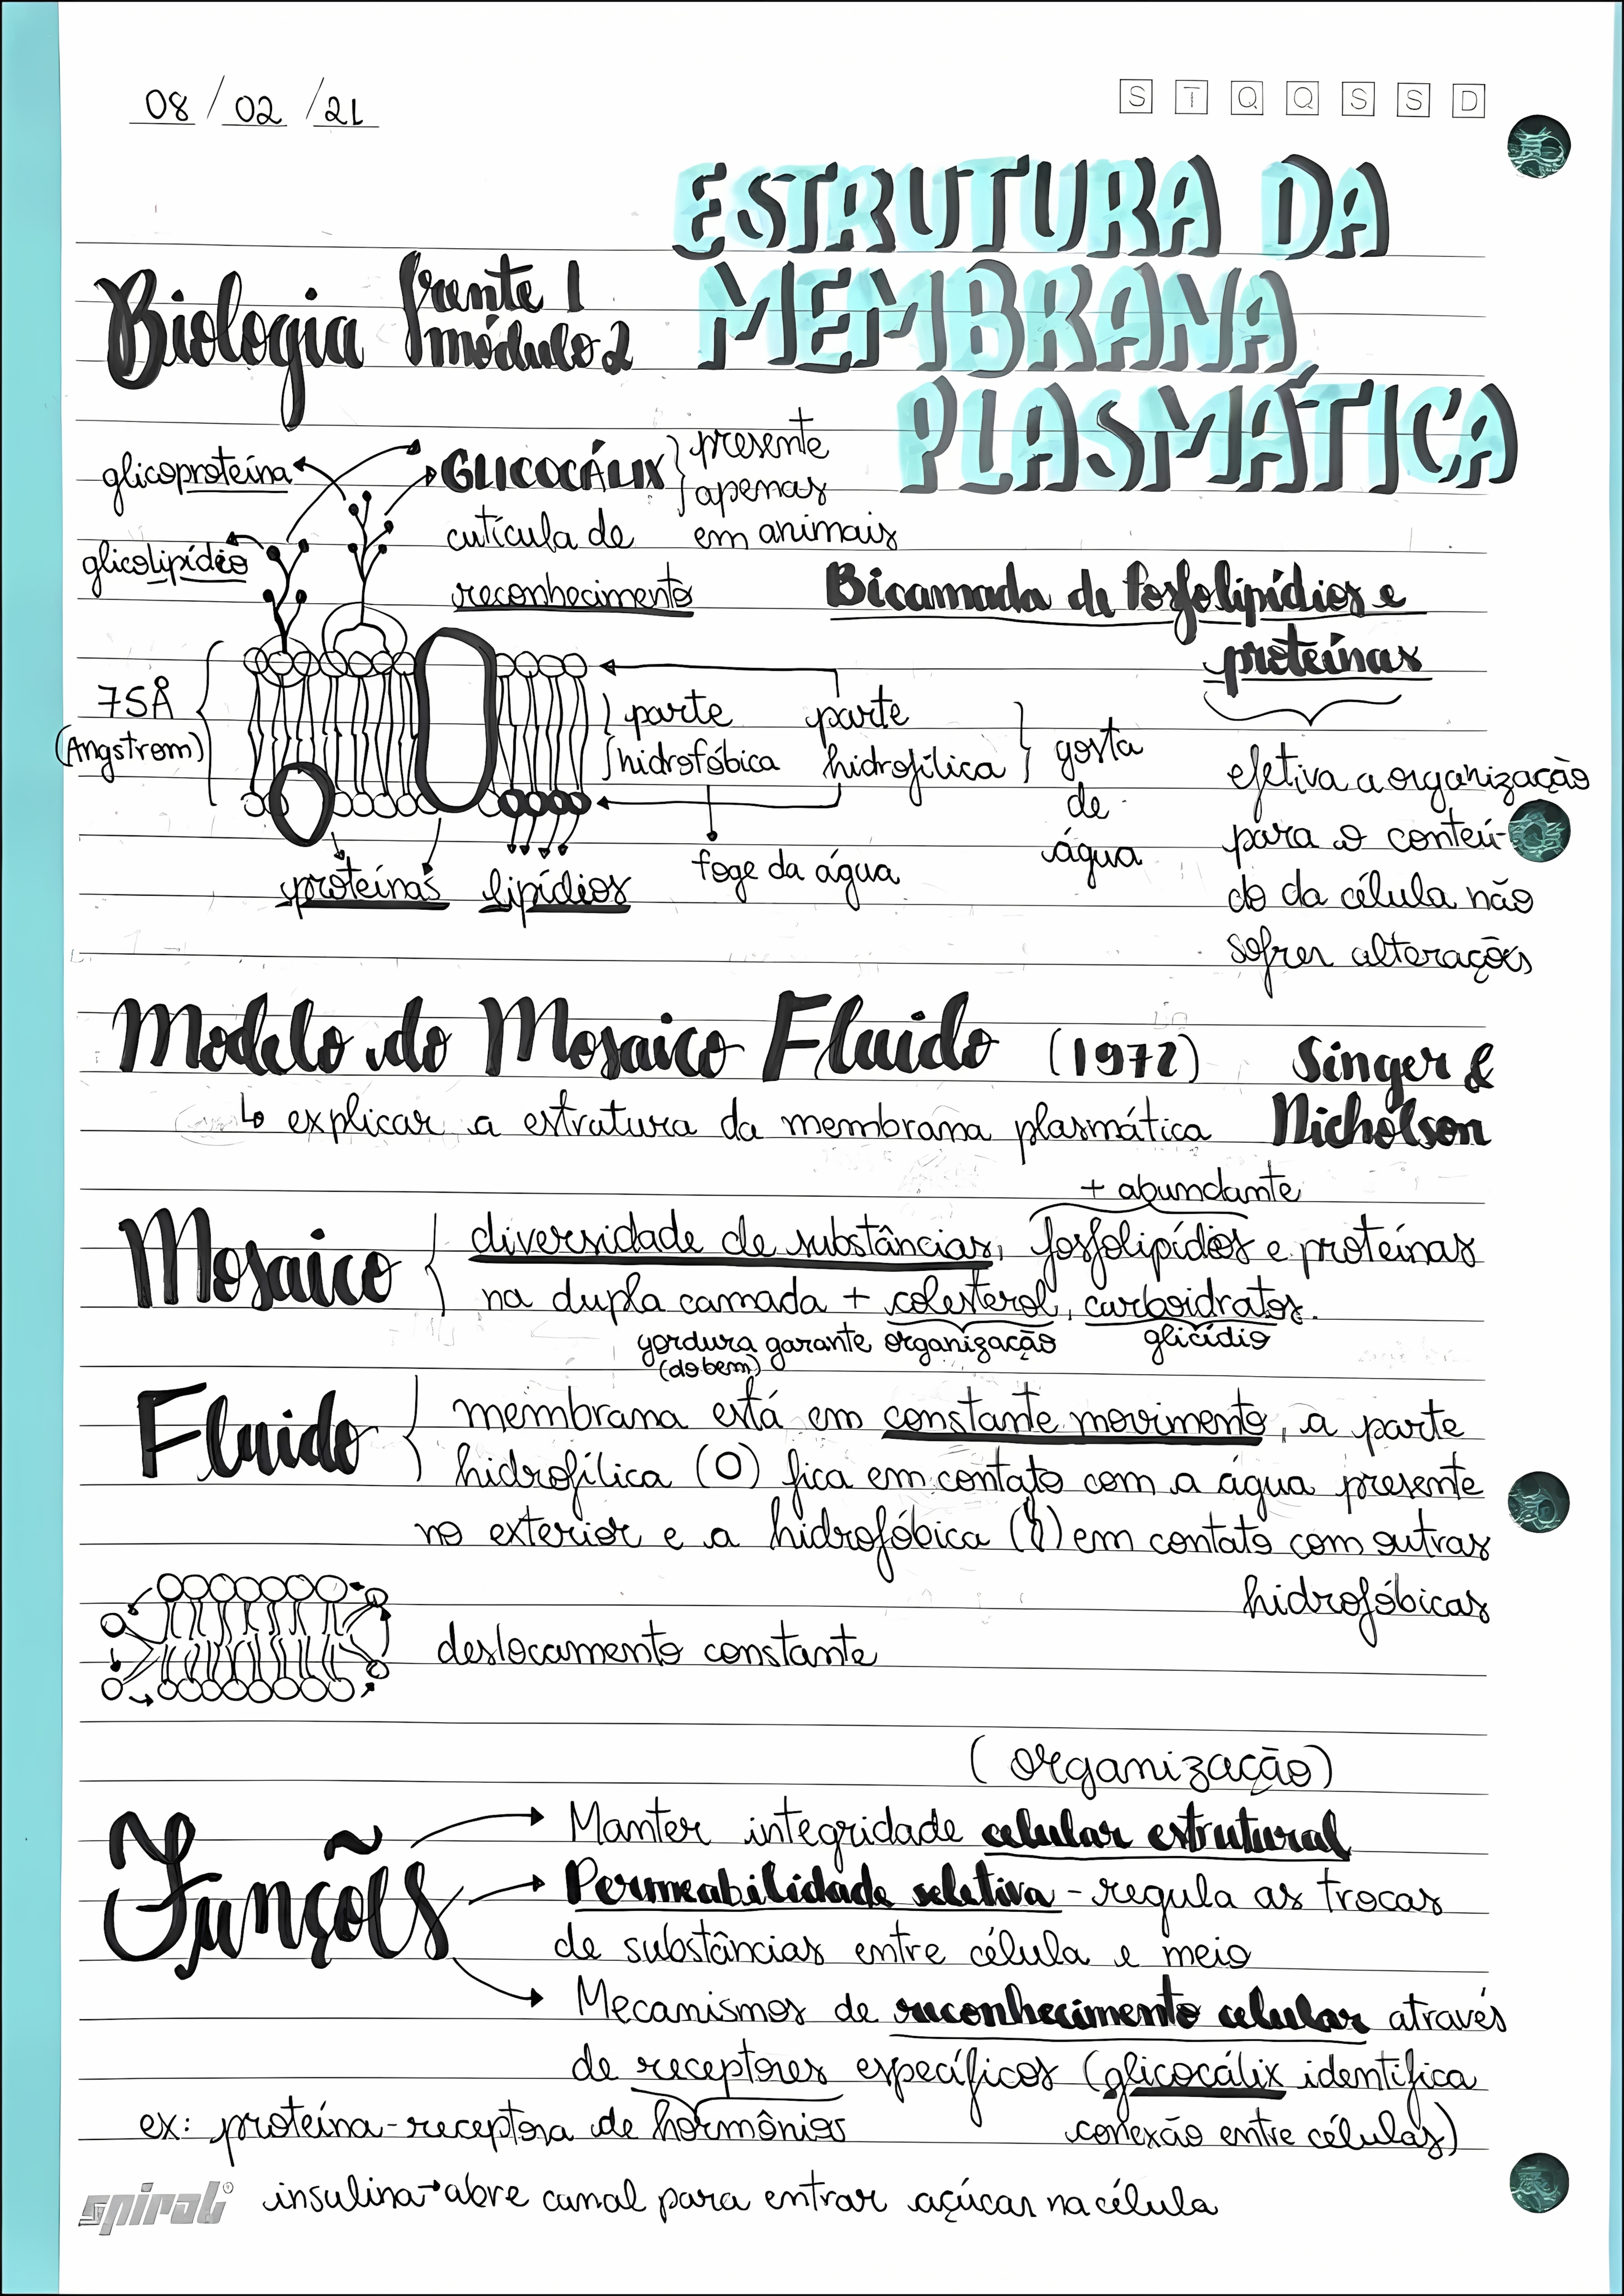 08 / 02 / 21
S T Q Q S S D
ESTRUTURA DA
MEMBRANA
PLASMÁTICA
Biologia frente 1
módulo 2
glicoproteína
GLICOCÁLIX
presente
apenas
em animais
cutícula de
reconhecimento
glicolipídeo
Bicamada de fosfolipídios e
proteínas
75Å
(Angstrom)
parte
hidrofóbica
parte
hidrofílica
gosta
de
água
foge da água
proteínas lipídios
efetiva a organização
para o conteú-
do da célula não
sofrer alterações
Modelo do Mosaico Fluido (1972) Singer &
Nicholson
↳ explicar a estrutura da membrana plasmática
+ abundante
Mosaico { diversidade de substâncias, fosfolipídios e proteínas
na dupla camada + colesterol, carboidratos.
gordura garante organização glicídio
(do bem)
Fluido { membrana está em constante movimento, a parte
hidrofílica (O) fica em contato com a água presente
no exterior e a hidrofóbica (
) em contato com outras
hidrofóbicas
deslocamento constante
(organização)
Funções
→ Manter integridade celular estrutural
→ Permeabilidade seletiva - regula as trocas
de substâncias entre célula e meio
→ Mecanismos de reconhecimento celular através
de receptores específicos (glicocálix identifica
conexão entre células)
ex: proteína-receptora de hormônios
insulina → abre canal para entrar açúcar na célula
spiral®